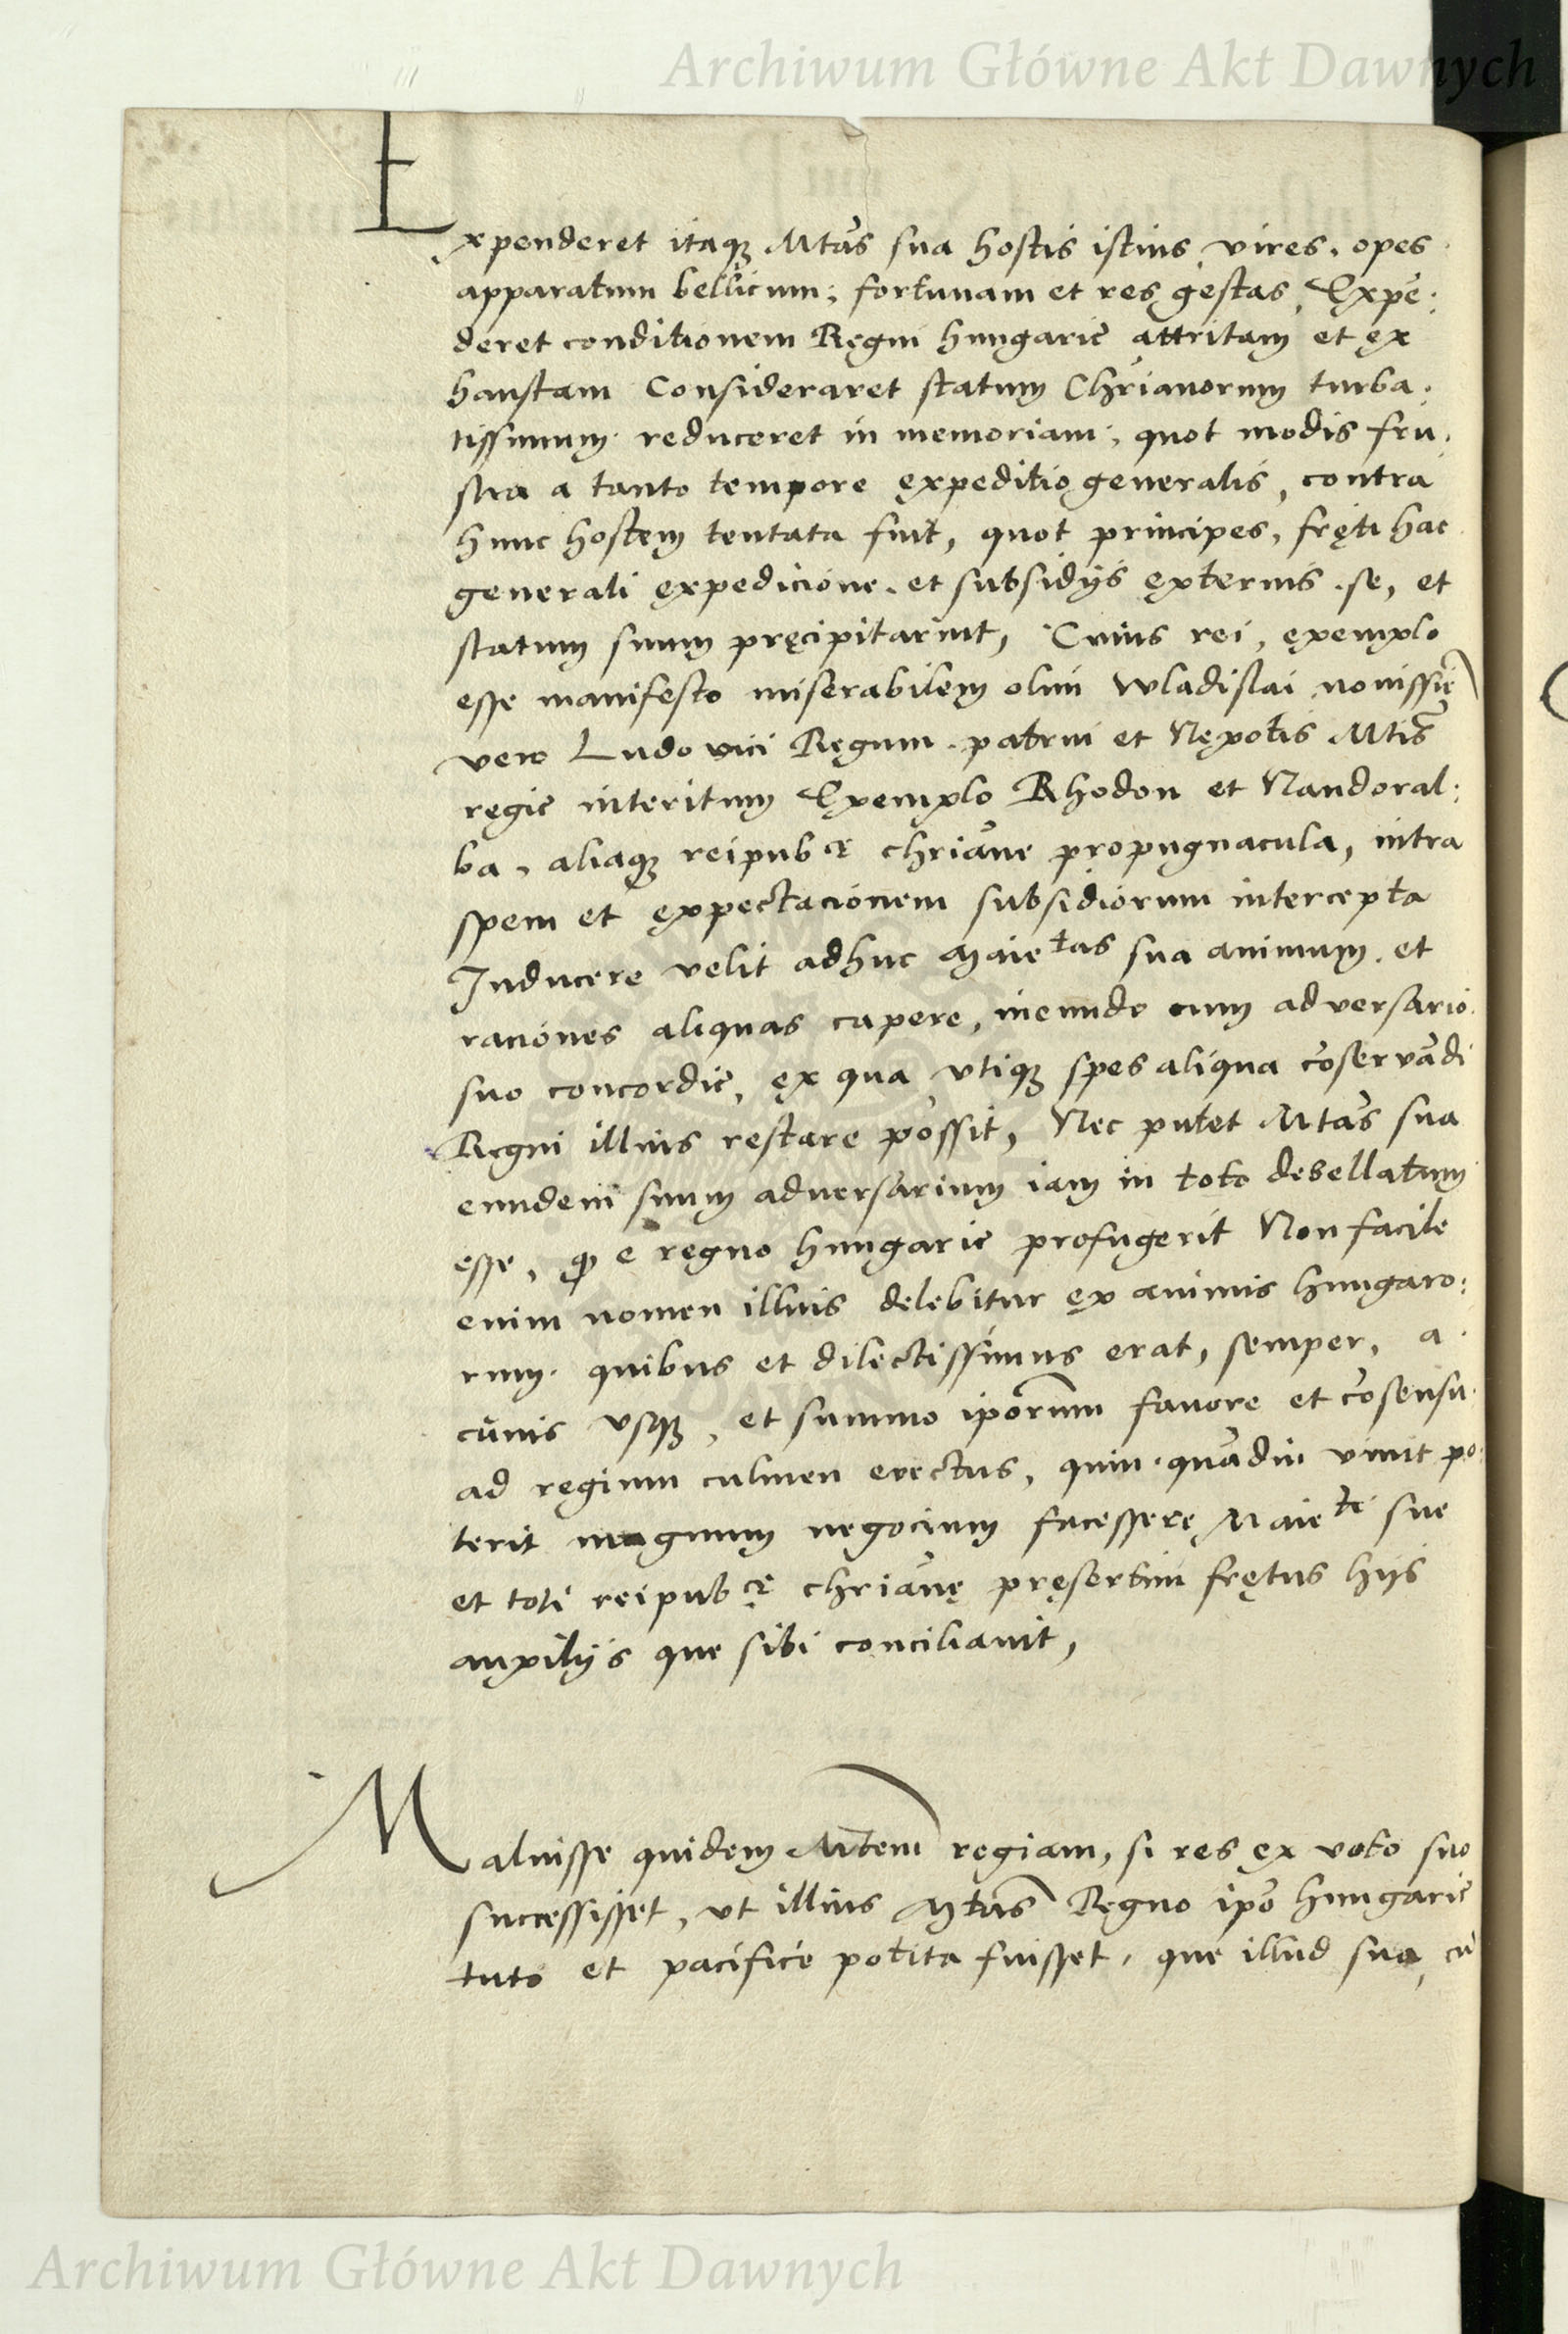 Archiwum Główne Akt Dawnych
Expenderet itaqꝫ Mtas̃ sua hostis istius, vires, opes
apparatum bellicum, fortunam et res gestas, Expē:
deret conditionem Regni hungarie attritam et ex
haustam Consideraret statum Chrianorum turba:
tissimum. reduceret in memoriam, quot modis fru:
stra a tanto tempore expeditio generalis, contra
hunc hostem tentata fuit, quot principes, fręti hac
generali expedicione. et subsidijs externis. se, et
statum suum pręcipitarint, Cuius rei, exemplo
esse manifesto miserabilem olim Wladislai nouissiẽ
vero Ludovici Regum. patrui et Nepotis Mtis̃
regie interitum Exemplo Rhodon et Nandoral:
ba, aliaqꝫ reipubcę chriãne propugnacula, intra
spem et expectacionem subsidiorum intercepta
Inducere velit adhuc Maietas sua animum. et
raciones aliquas capere, ineunde cum adversario
suo concordie, ex qua vtiqꝫ spes aliqua cõservãdi
Regni illius restare possit, Nec putet Mtas̃ sua
eundem suum adversarium iam in toto debellatum
esse, qꝫ e regno hungarie profugerit Non facile
enim nomen illius delebitur ex animis hungaro:
rum. quibus et dilectissimus erat, semper, a
cunis vsqꝫ, et summo ipõrum fauore et cõsensu.
ad regium culmen erectus, quin. quãdiu viuit po:
terit magnum negocium facessere Maieti sue
et toti reipubcę chriãnę pręsertim frętus hijs
auxilijs que sibi conciliauit,
Maluisse quidem Mtem̃ regiam, si res ex voto suo
successisset, vt illius Mtas̃ Regno ipõ hungarie
tuto et pacifice potita fuisset, que illud sua, cũ
Archiwum Główne Akt Dawnych